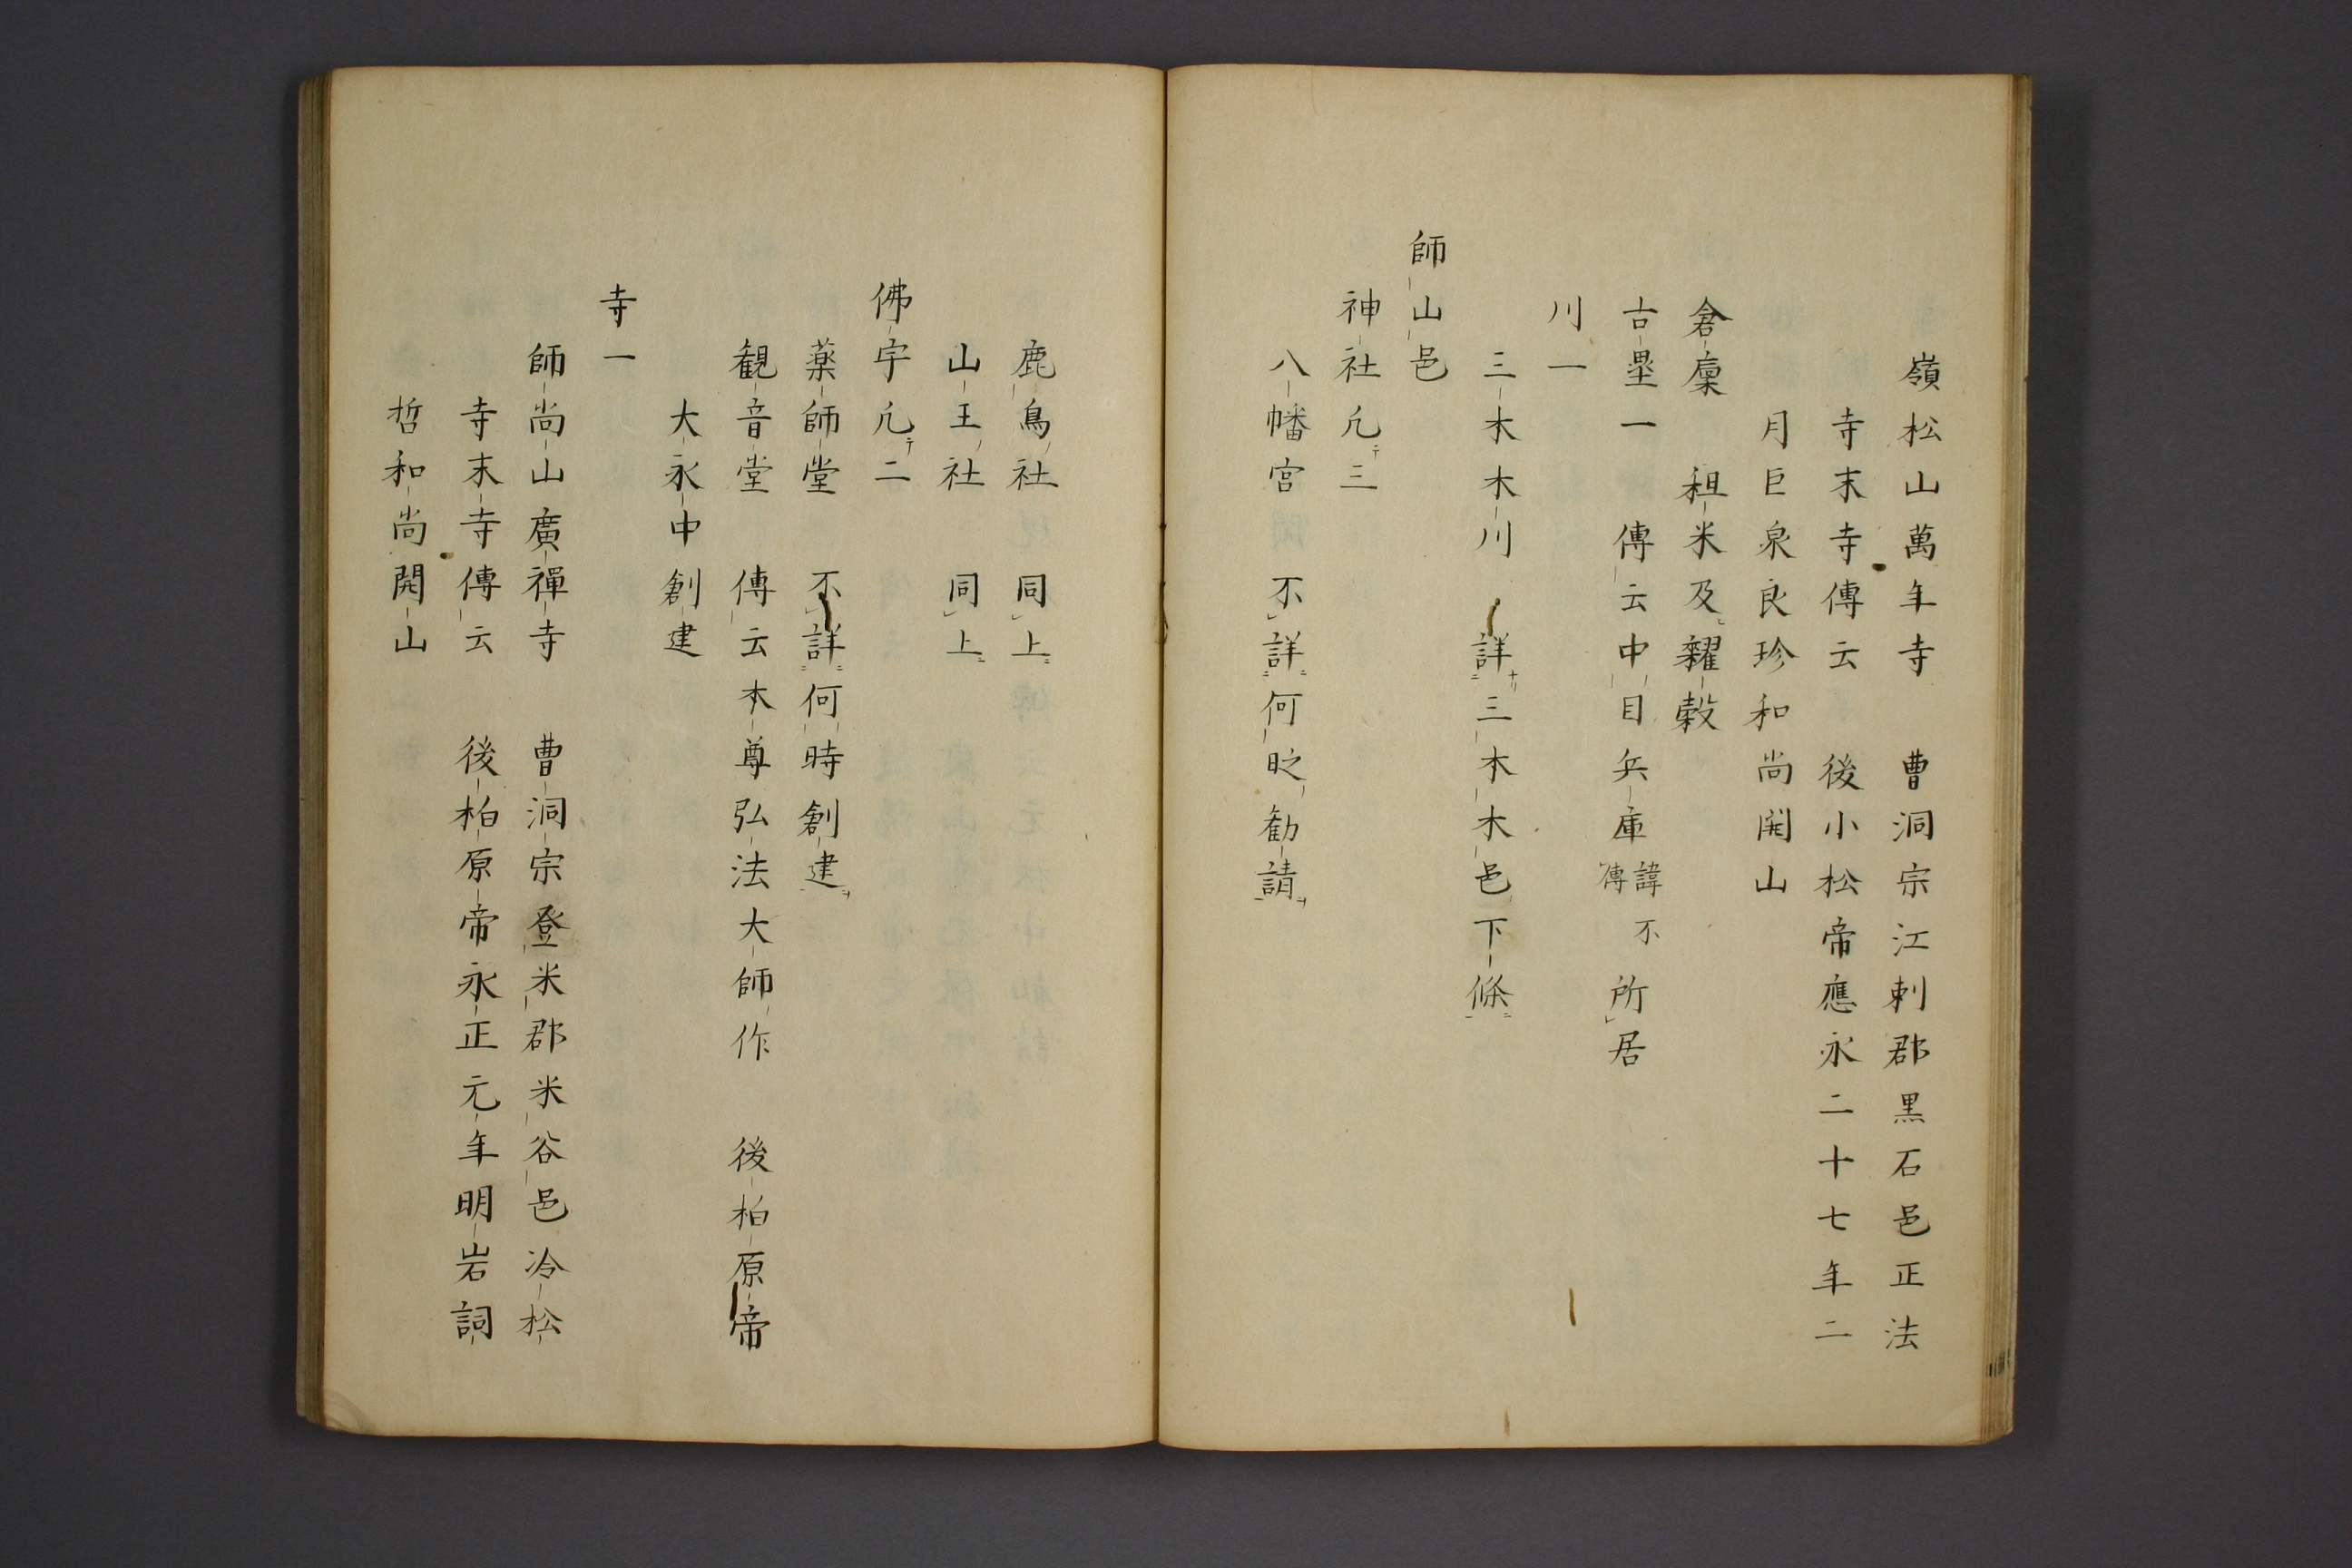 嶺松山萬年寺　曹洞宗江刺郡黒石邑正法
寺末寺傳云　後小松帝應永二十七年二
月巨泉良珍和尚開山
倉廩　租米及糴穀
古壘一　傳云中目兵庫諱不傳所居
川一
三木木川　詳三木木邑下條
師山邑
神社凡三
八幡宮　不詳何時勧請
鹿島社　同上
山王社　同上
佛宇凡二
薬師堂　不詳何時創建
観音堂　傳云本尊弘法大師作　後柏原帝
大永中創建
寺一
師尚山廣禪寺　曹洞宗登米郡米谷邑冷松
寺末寺傳云　後柏原帝永正元年明岩詞
哲和尚開山